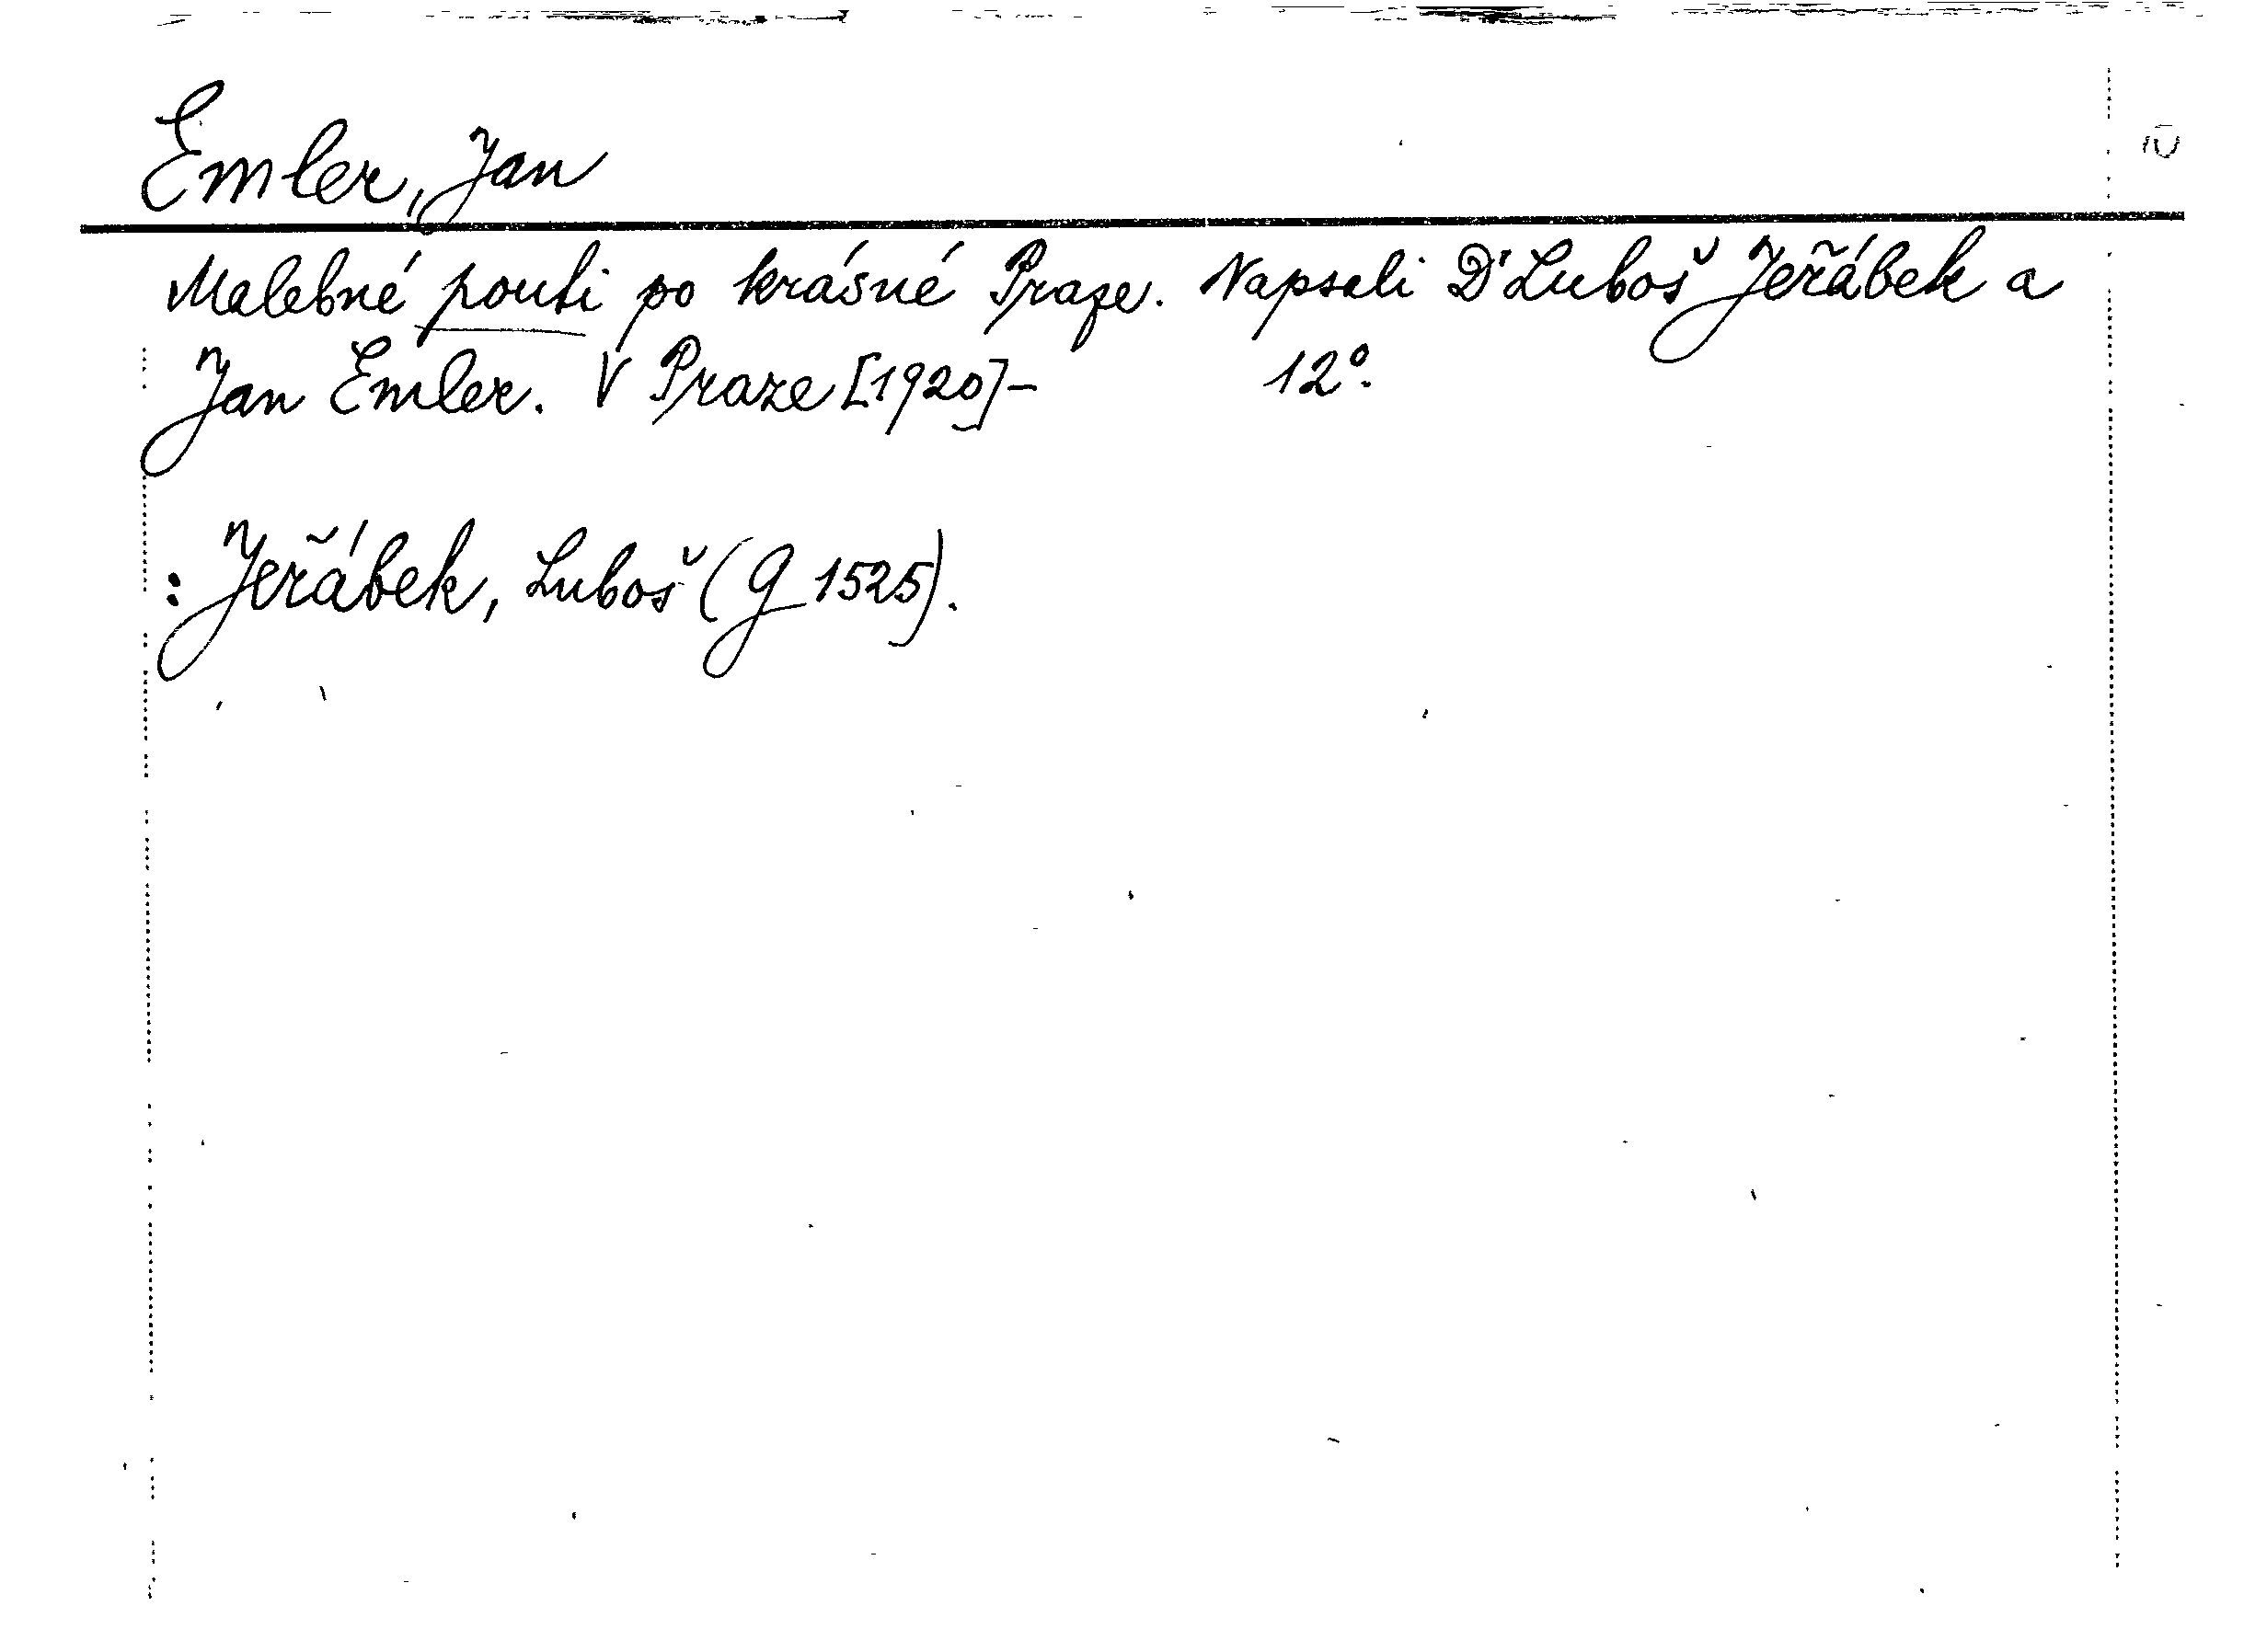 Emler, Jan
Malebné pouti po krásné Praze. Napsali Dr Luboš Jeřábek a
Jan Emler. V Praze [1920]- 12°.
: Jeřábek, Luboš (G 1525).